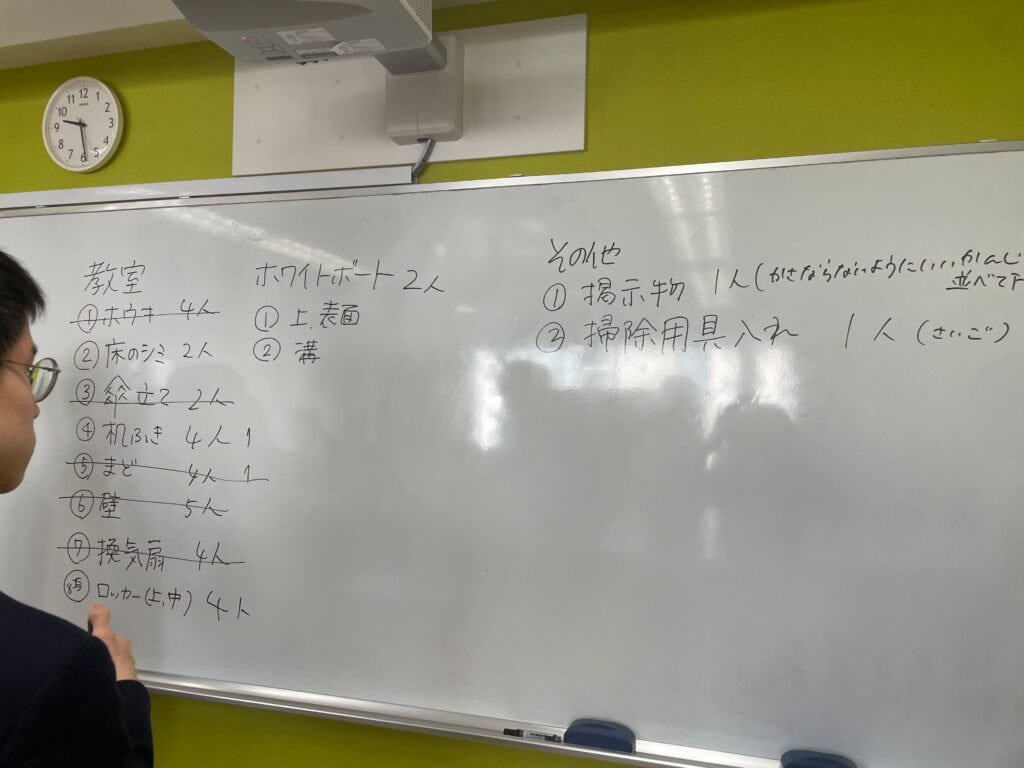 教室
① ホウキ 4人
② 床のシミ 2人
③ 傘立て 2人
④ 机ふき 4人 1
⑤ まど 4人 1
⑥ 壁 5人
⑦ 換気扇 4人
⑧ ロッカー(上,中) 4人
ホワイトボート 2人
① 上.表面
② 溝
その他
① 掲示物 1人(かさならないようにいいかんじ
並べて
② 掃除用具入れ 1人(さいご)
12
1
2
3
4
5
6
7
8
9
10
11